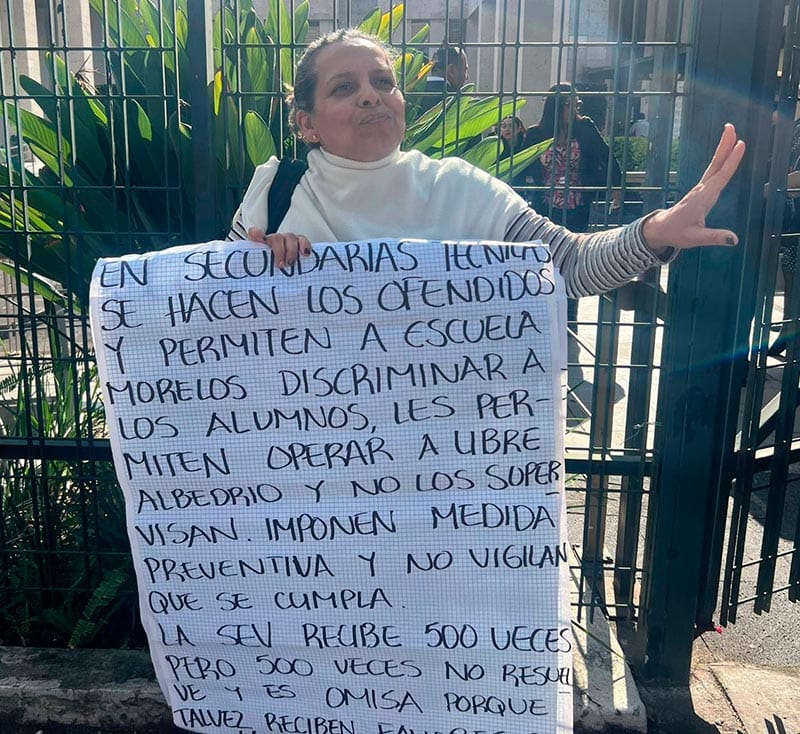 EN SECUNDARIAS TÉCNICAS
SE HACEN LOS OFENDIDOS
Y PERMITEN A ESCUELA
MORELOS DISCRIMINAR A
LOS ALUMNOS, LES PER-
MITEN OPERAR A LIBRE
ALBEDRIO Y NO LOS SUPER-
VISAN. IMPONEN MEDIDA
PREVENTIVA Y NO VIGILAN
QUE SE CUMPLA.
LA SEV RECIBE 500 VECES
PERO 500 VECES NO RESUEL-
VE Y ES OMISA PORQUE
TALVEZ RECIBEN